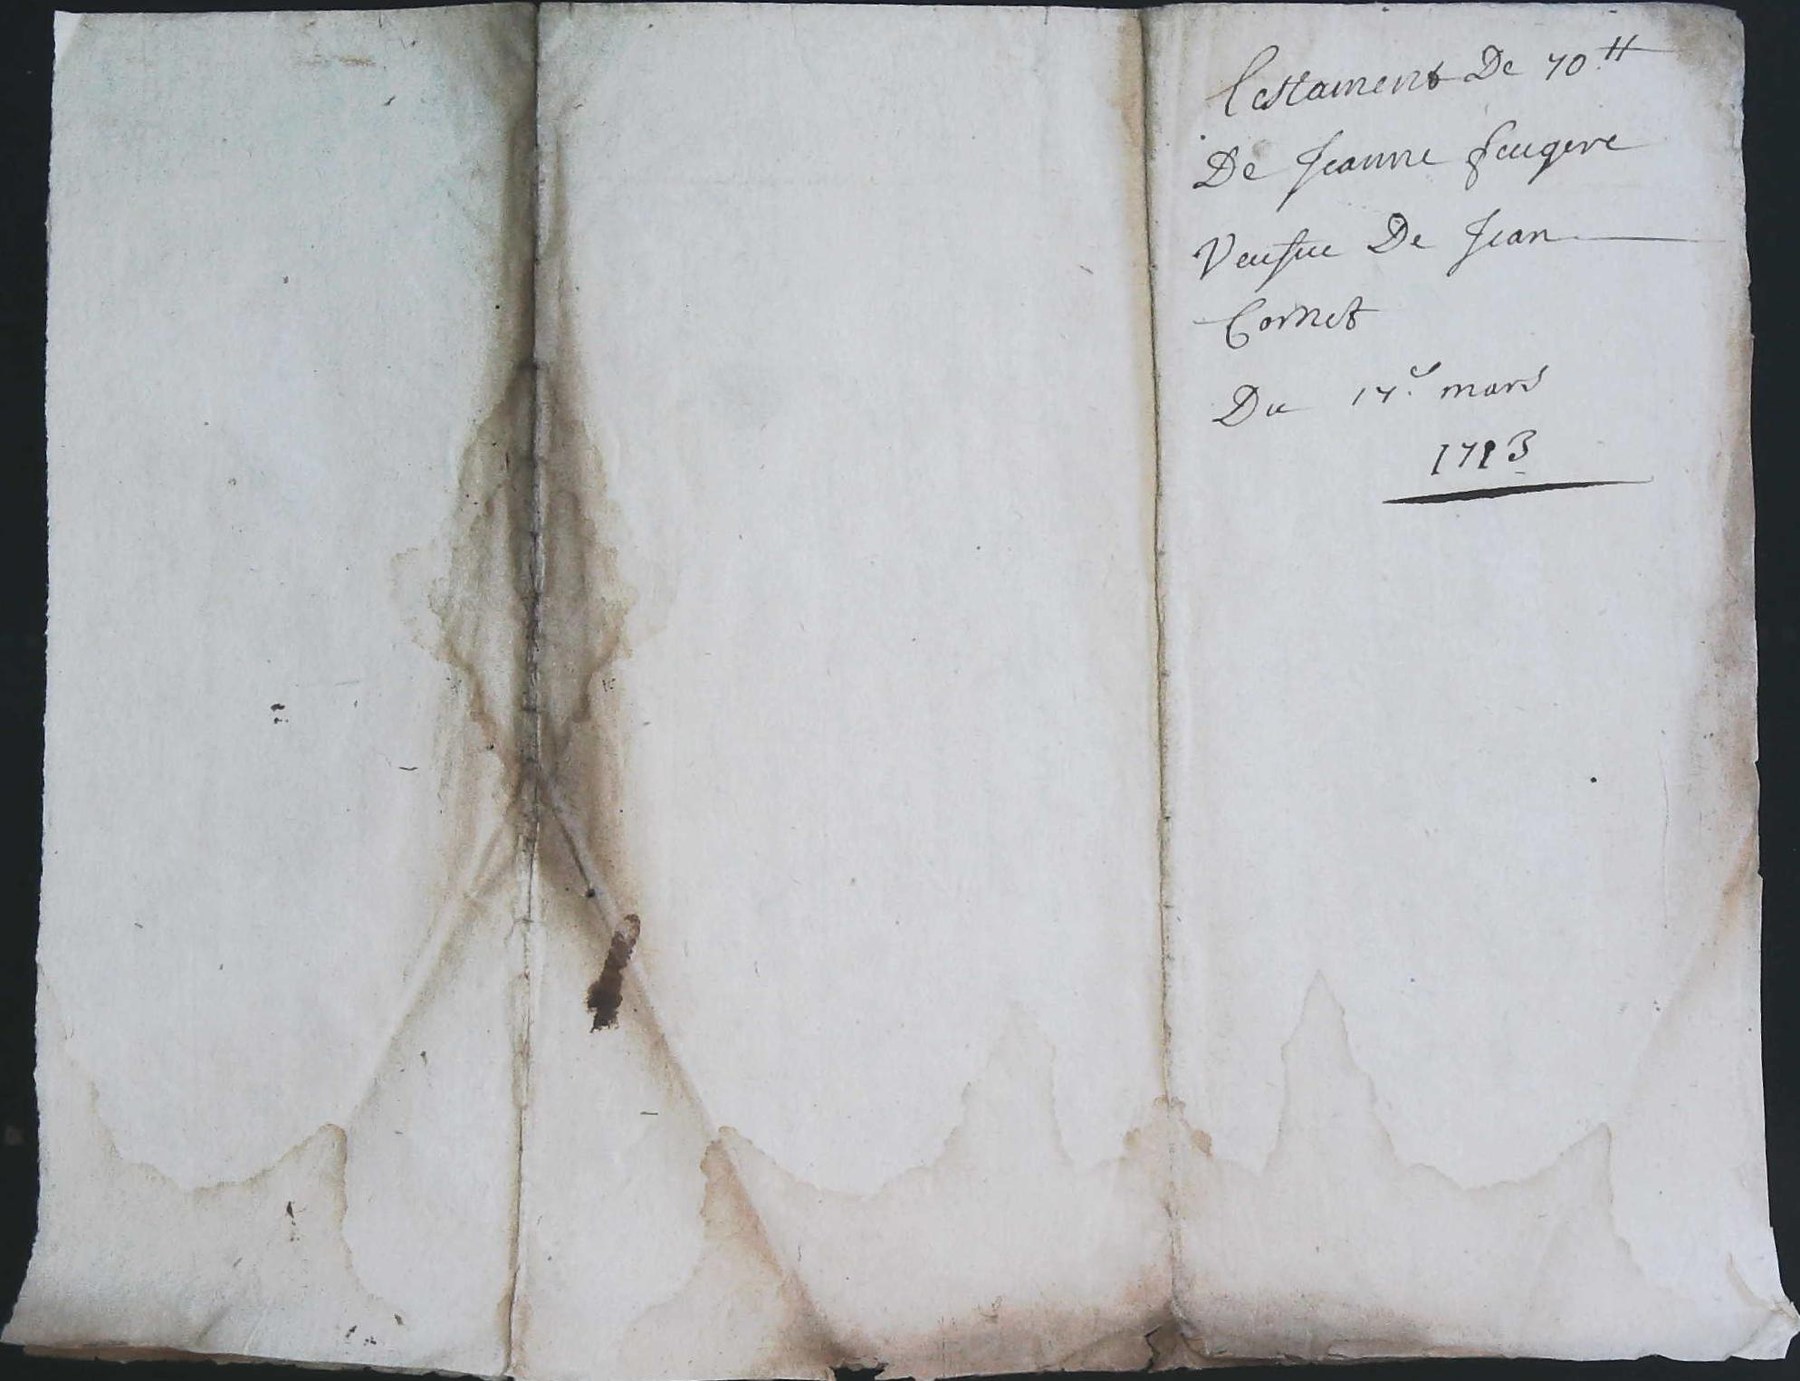 Testament De 70tt
De Jeanne feugere
Veufue De Jean
Cornet
Du 17e mars
1713